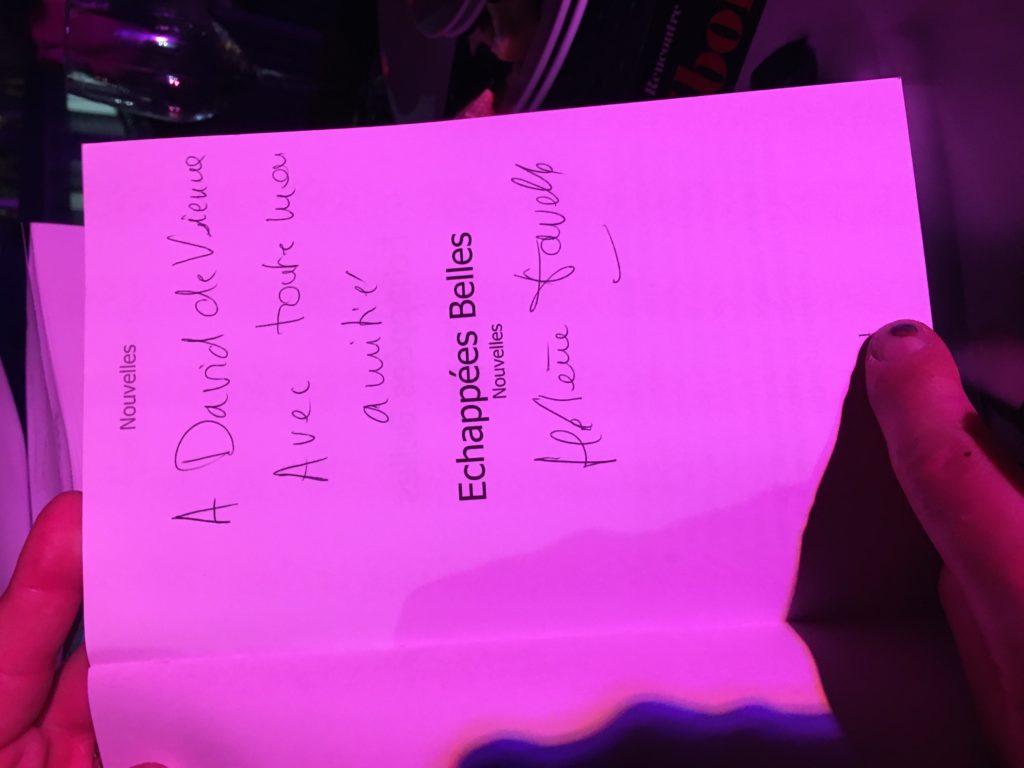 Nouvelles
A David de Vienne
Avec toute mon
amitié
Echappées Belles
Nouvelles
Rencontre